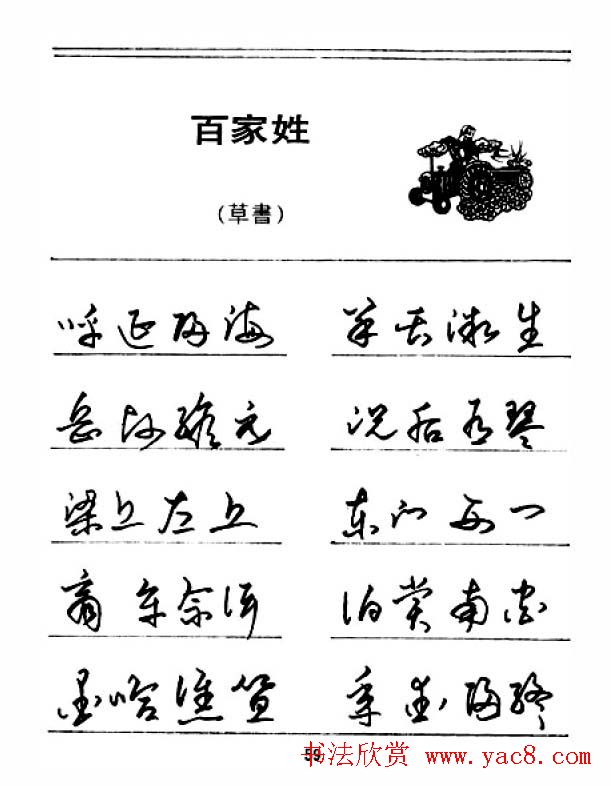 百家姓
（草書）
呼延归海 羊舌微生
岳帅缑亢 况后有琴
梁丘左丘 东门西门
商牟佘佴 伯赏南宫
墨哈谯笪 年爱阳
59
书法欣赏 www.yac8.com